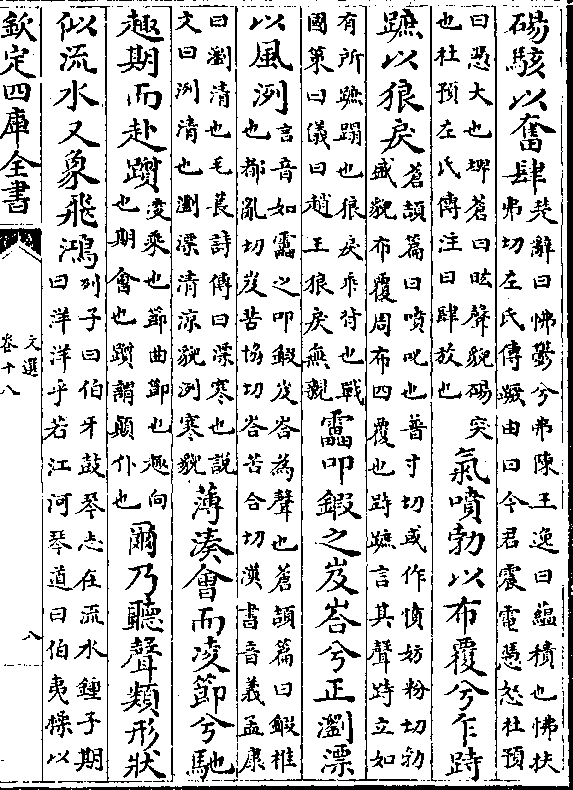 碭駭以奮肆楚辭曰怫鬱兮弗陳王逸曰蘊積也怫扶
弗切左氏傳蹶由曰今君震電憑怒杜預
曰憑大也埤蒼曰呟聲貌碭突
也杜預左氏傳注曰肆放也氣噴勃以布覆兮乍跱
蹠以狼戾蒼頡篇曰噴吒也普寸切或作憤妨粉切勃
盛貌布覆周布四覆也跱蹠言其聲跱立如
有所蹠蹋也狼戾乖背也戰
國策曰儀曰趙王狼戾無親靁叩鍜之岌峇兮正瀏漂
以風冽言音如靁之叩鍜岌峇為聲也蒼頡篇曰鍜椎
也都亂切岌苦協切峇苦合切漢書音義孟康
曰瀏清也毛萇詩傳曰溧寒也說
文曰冽清也瀏溧清涼貌冽寒貌薄湊會而凌節兮馳
趣期而赴躓凌乘也節曲節也趣向
也期會也躓謂顛仆也爾乃聽聲類形狀
似流水又象飛鴻列子曰伯牙鼓琴志在流水鍾子期
曰洋洋乎若江河琴道曰伯夷操以
欽定四庫全書
文選
卷十八
八